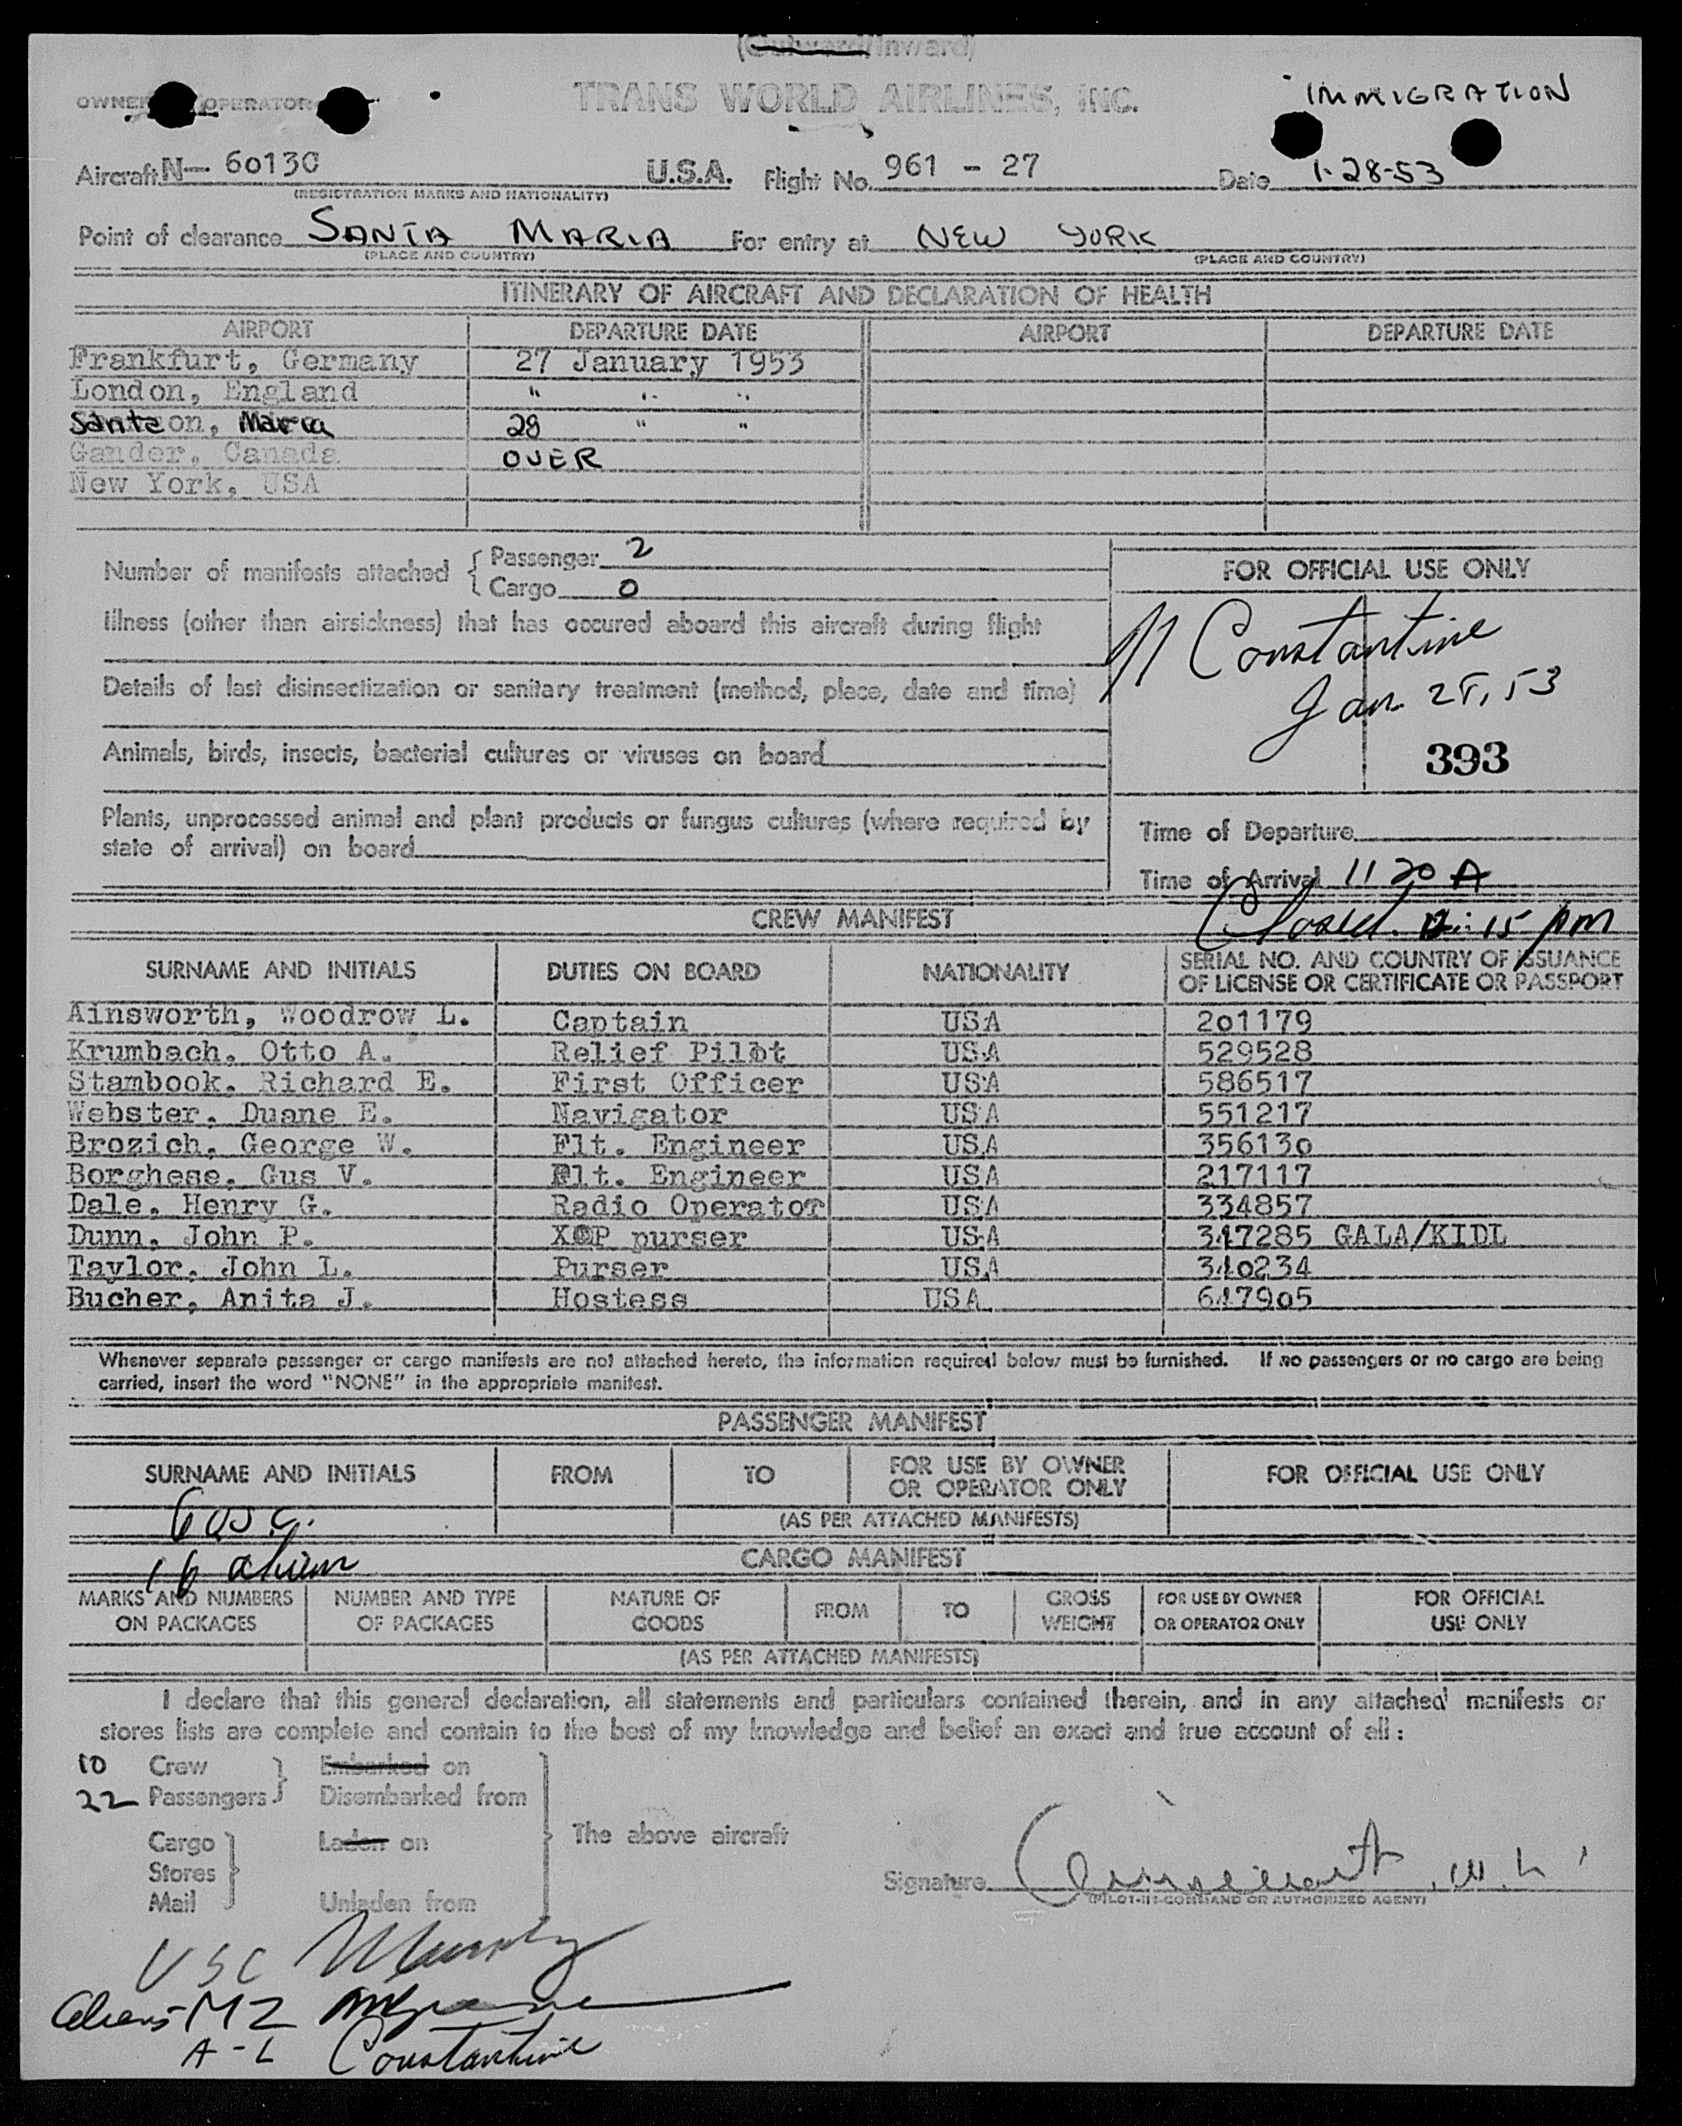 (Outward/Inward)
OWNER OPERATOR TRANS WORLD AIRLINES, INC. IMMIGRATION
Aircraft N— 60130 U.S.A. Flight No. 961 - 27 Date 1-28-53
(REGISTRATION MARKS AND NATIONALITY)
Point of clearance SANTA MARIA For entry at NEW YORK
(PLACE AND COUNTRY) (PLACE AND COUNTRY)
ITINERARY OF AIRCRAFT AND DECLARATION OF HEALTH
AIRPORT DEPARTURE DATE AIRPORT DEPARTURE DATE
Frankfurt, Germany 27 January 1953
London, England " " "
Santa on, Maria 28 " "
Gander, Canada OVER
New York, USA
Number of manifests attached { Passenger 2
Cargo 0
FOR OFFICIAL USE ONLY
Illness (other than airsickness) that has occured aboard this aircraft during flight
Constantine
Details of last disinsectization or sanitary treatment (method, place, date and time)
Jan 28, 53
Animals, birds, insects, bacterial cultures or viruses on board
393
Plants, unprocessed animal and plant products or fungus cultures (where required by
state of arrival) on board
Time of Departure
Time of Arrival 11 20 A
CREW MANIFEST
Closed 12:15 pm
SURNAME AND INITIALS DUTIES ON BOARD NATIONALITY SERIAL NO. AND COUNTRY OF ISSUANCE
OF LICENSE OR CERTIFICATE OR PASSPORT
Ainsworth, Woodrow L. Captain USA 201179
Krumbach, Otto A. Relief Pilot USA 529528
Stambook, Richard E. First Officer USA 586517
Webster, Duane E. Navigator USA 551217
Brozich, George W. Flt. Engineer USA 356130
Borghese, Gus V. Flt. Engineer USA 217117
Dale, Henry G. Radio Operator USA 334857
Dunn, John P. purser USA 347285 GALA/KIDL
Taylor, John L. Purser USA 340234
Bucher, Anita J. Hostess USA 647905
Whenever separate passenger or cargo manifests are not attached hereto, the information required below must be furnished. If no passengers or no cargo are being
carried, insert the word "NONE" in the appropriate manifest.
PASSENGER MANIFEST
SURNAME AND INITIALS FROM TO FOR USE BY OWNER
OR OPERATOR ONLY FOR OFFICIAL USE ONLY
6 USC.
(AS PER ATTACHED MANIFESTS)
16 alien
CARGO MANIFEST
MARKS AND NUMBERS
ON PACKAGES NUMBER AND TYPE
OF PACKAGES NATURE OF
GOODS FROM TO GROSS
WEIGHT FOR USE BY OWNER
OR OPERATOR ONLY FOR OFFICIAL
USE ONLY
(AS PER ATTACHED MANIFESTS)
I declare that this general declaration, all statements and particulars contained therein, and in any attached manifests or
stores lists are complete and contain to the best of my knowledge and belief an exact and true account of all:
10 Crew Embarked on
22 Passengers Disembarked from
Cargo Laden on The above aircraft
Stores
Mail Unladen from
Signature
(PILOT-IN-COMMAND OR AUTHORIZED AGENT)
USC
Aliens MZ
A-L Constantine